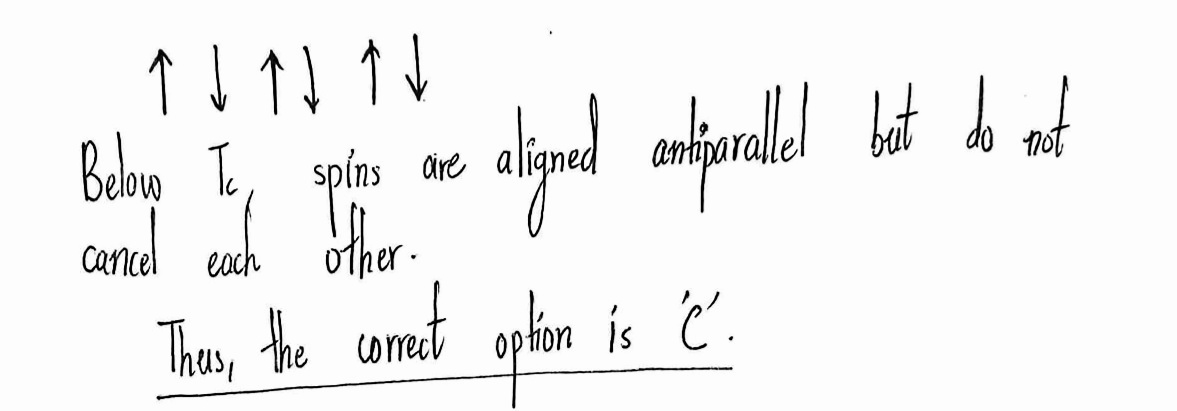 ↑ ↓ ↑ ↓ ↑ ↓
Below Tc, spins are aligned antiparallel but do not
cancel each other.
Thus, the correct option is 'C'.